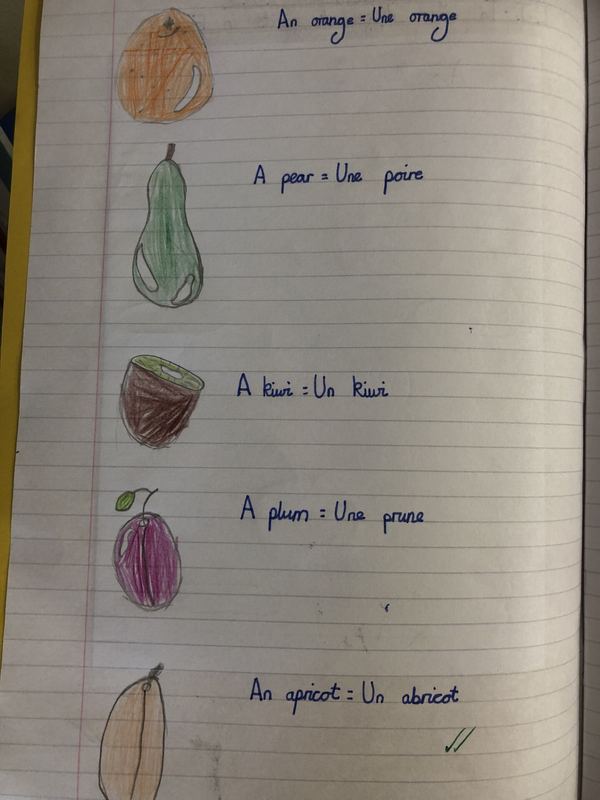 An orange = Une orange
A pear = Une poire
A kiwi = Un kiwi
A plum = Une prune
An apricot = Un abricot